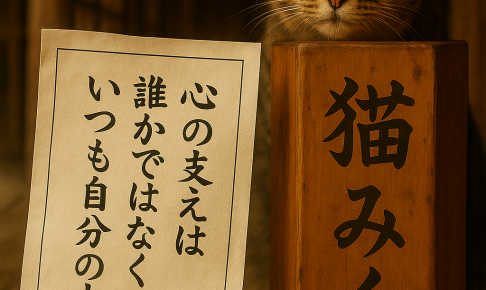 心の支えは
誰かではなく
いつも自分の
猫み